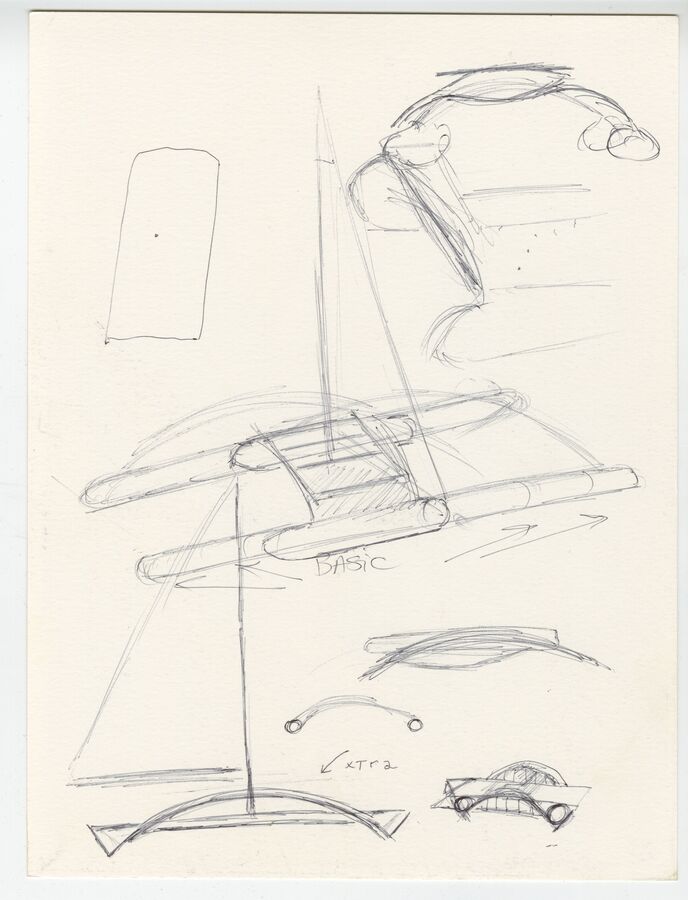 BASiC
xTra